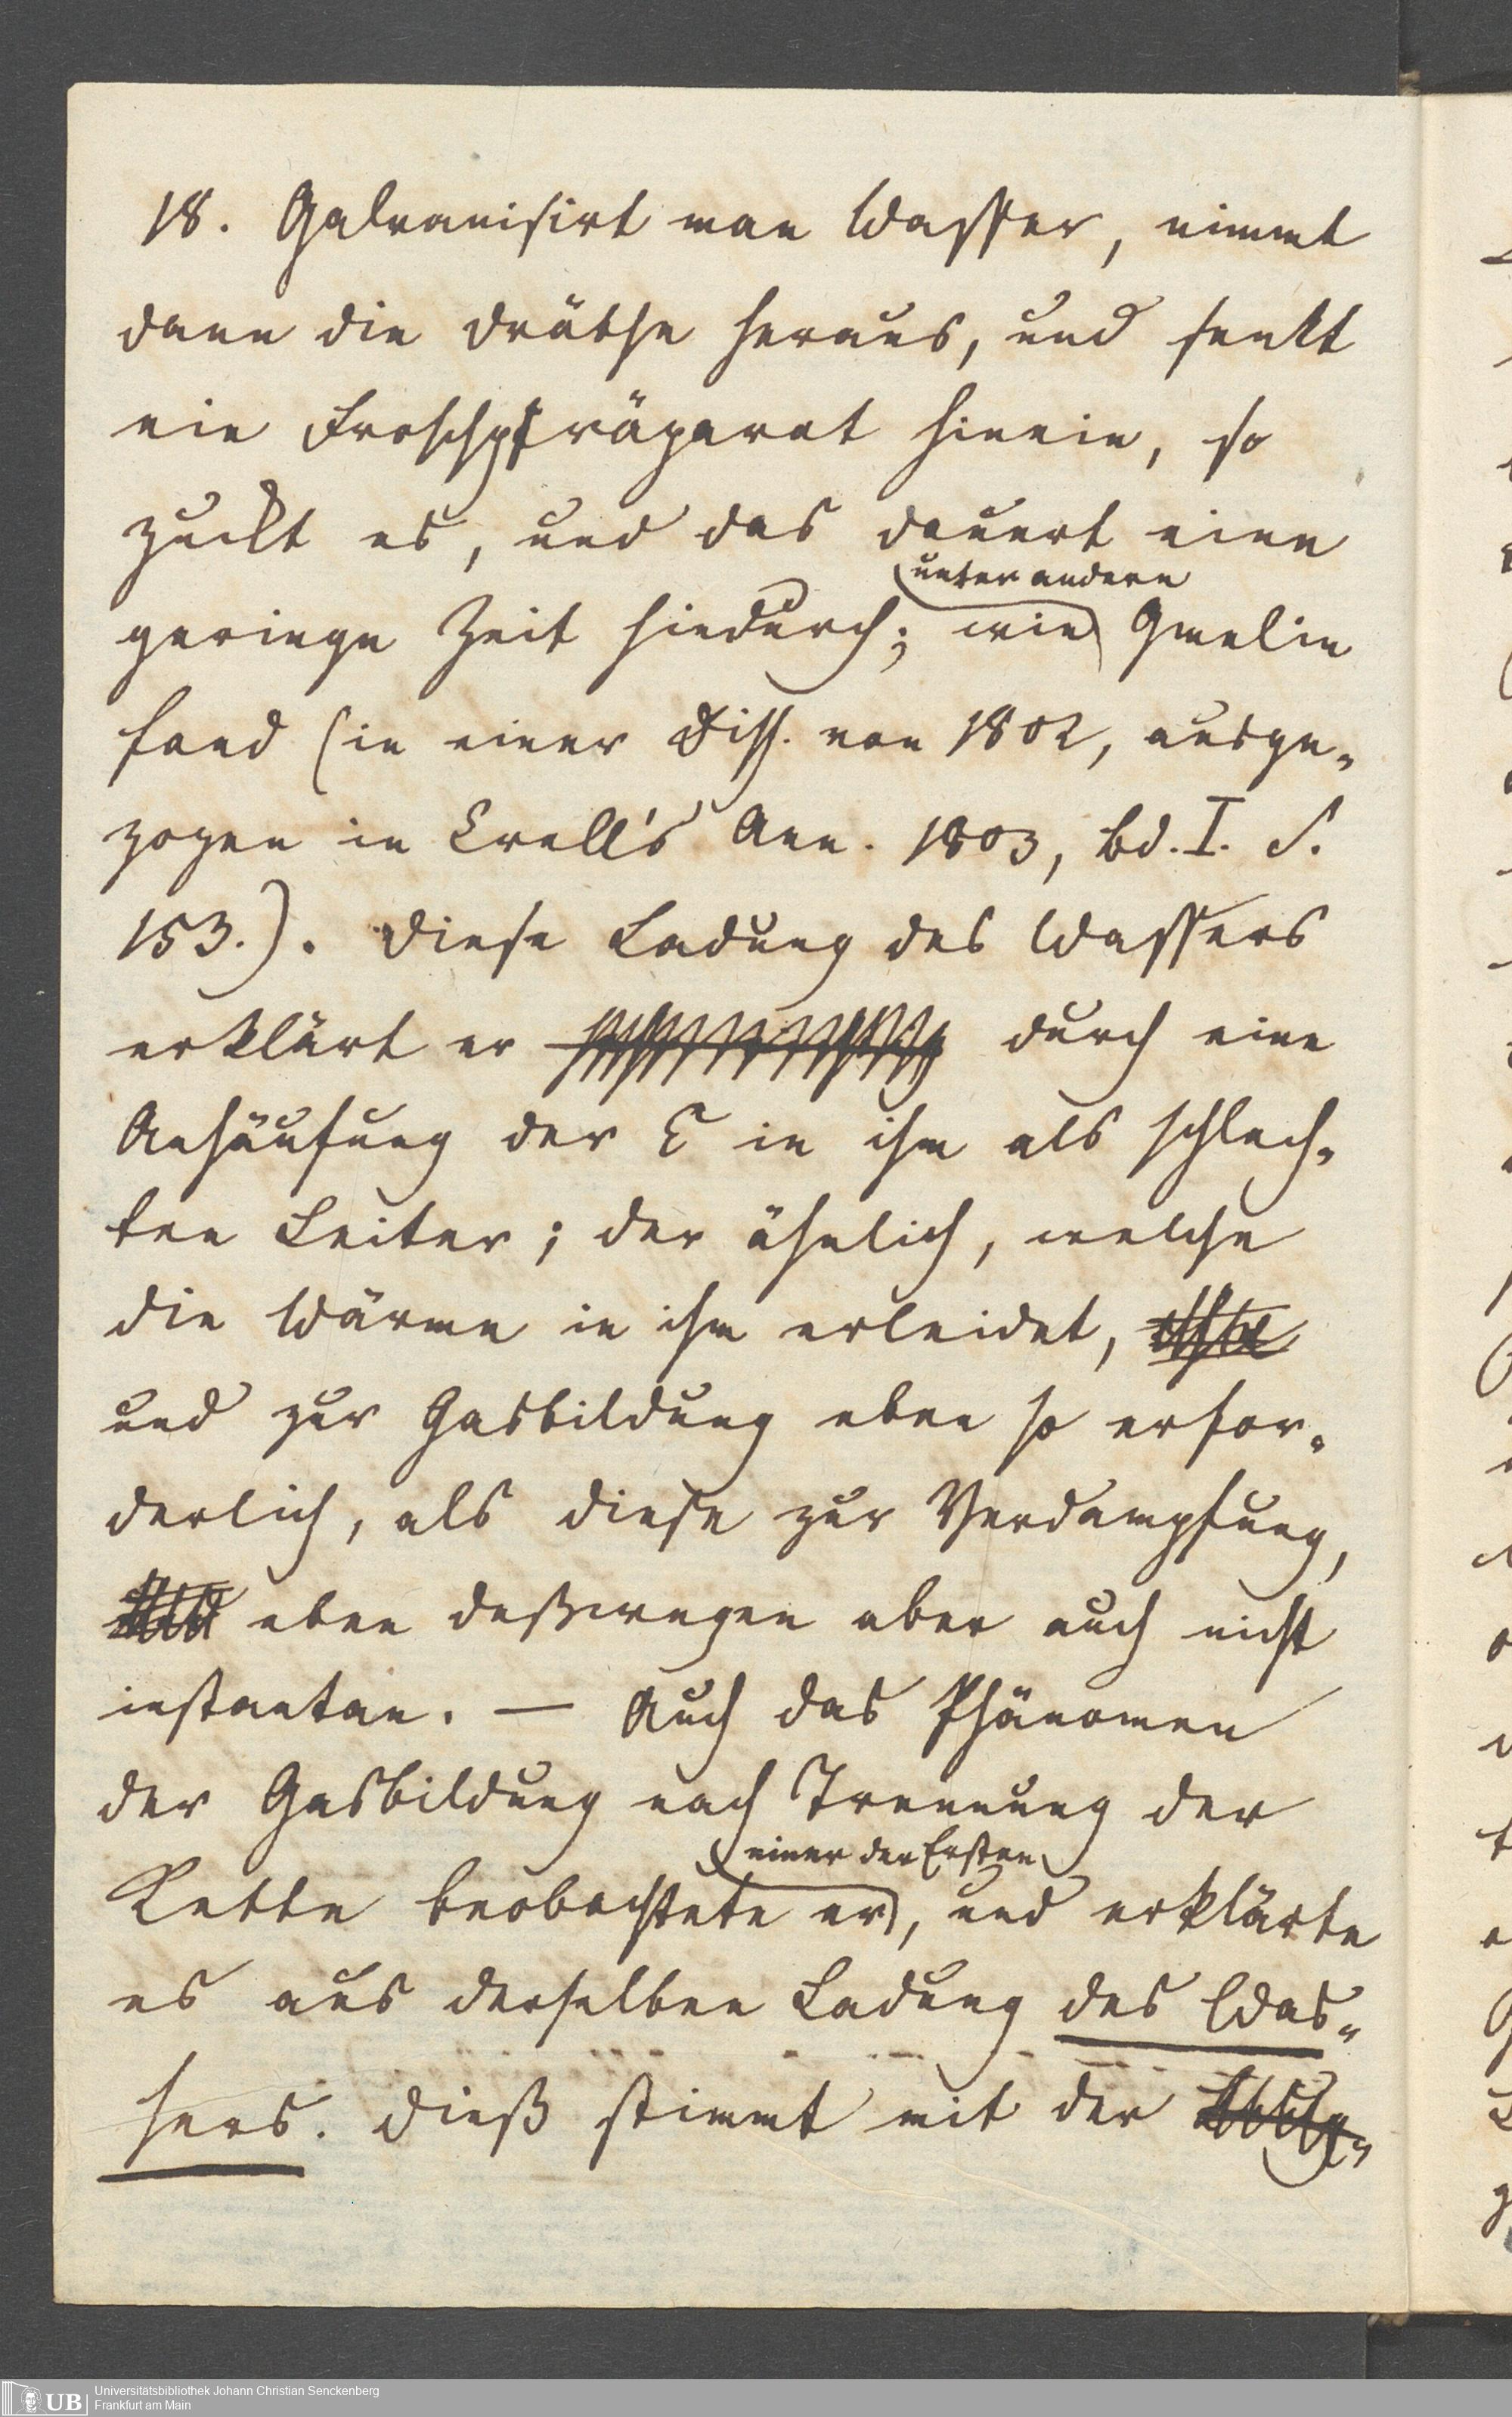 18. Galvanisirt man Wasser, nimmt
dann die Dräthe heraus, und senkt
ein Froschpräparat hinein, so
zuckt es, und das dauert eine
unter andern
geringe Zeit hindurch; wie Gmelin
fand (in einer Diss. von 1802, ausge„
zogen in Crell's Ann. 1803, Bd. I. S.
153.). Diese Ladung des Wassers
erklärt er durch eine
Anhäufung der E in ihm als schlech„
ten Leiter; der ähnlich, welche
die Wärme in ihm erleidet,
und zur Gasbildung eben so erfor„
derlich, als diese zur Verdampfung,
eben deßwegen aber auch nicht
instantan. — Auch das Phänomen
der Gasbildung nach Trennung der
einer der Ersten
Kette beobachtete er, und erklärte
es aus derselben Ladung des Was„
sers. Dieß stimmt mit der
UB Universitätsbibliothek Johann Christian Senckenberg
Frankfurt am Main